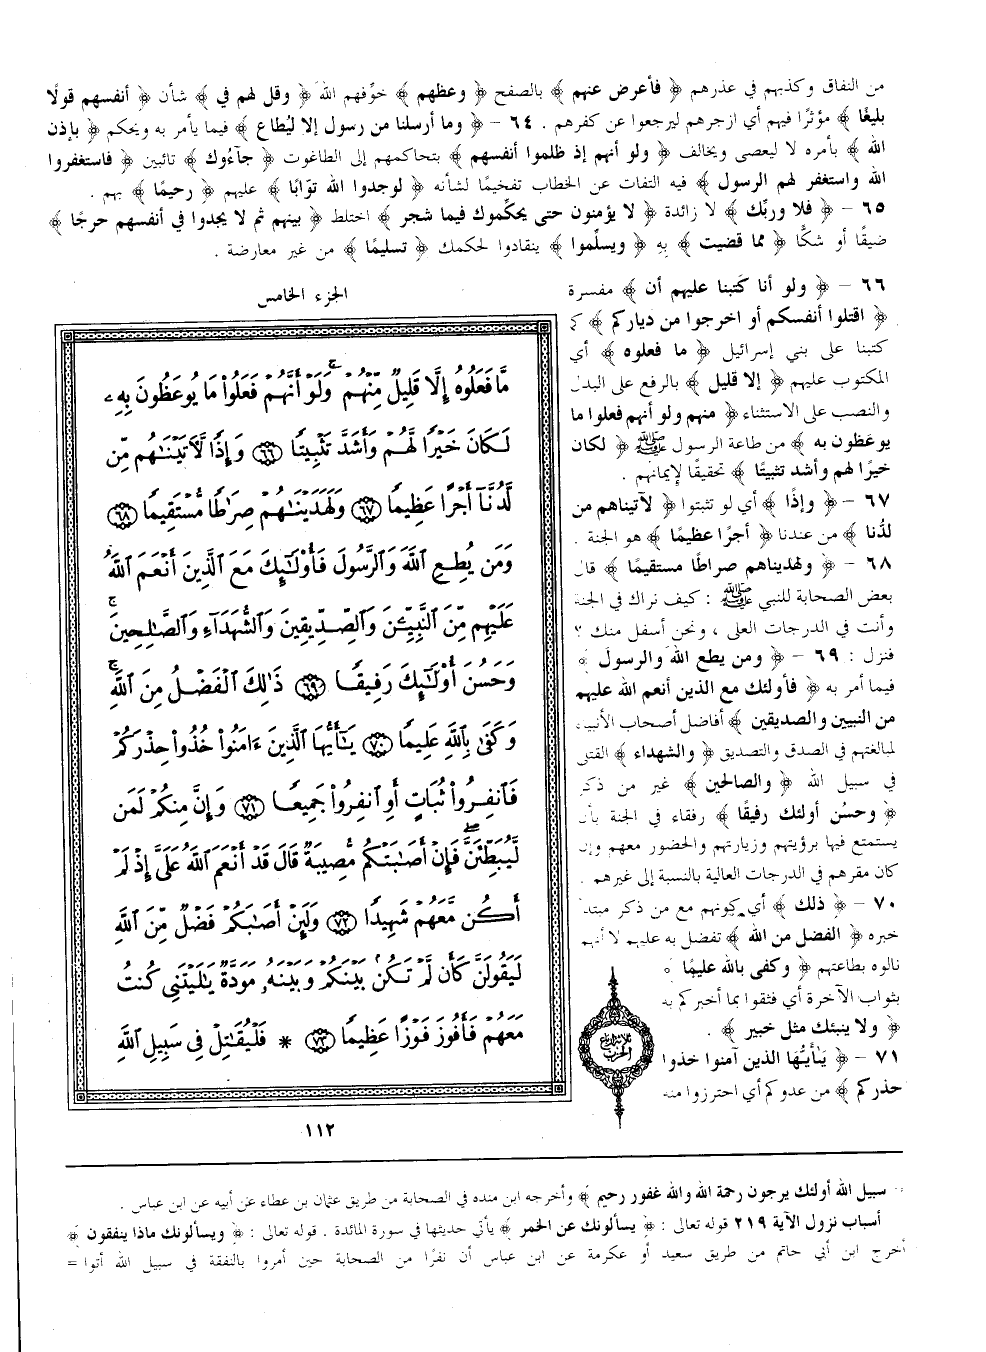 من النفاق وكذبهم في عذرهم ﴿ فأعرض عنهم ﴾ بالصفح ﴿ وعظهم ﴾ خوِّفهم الله ﴿ وقل لهم في ﴾ شأن ﴿ أنفسهم قولًا
بليغًا ﴾ مؤثرًا فيهم أي ازجرهم ليرجعوا عن كفرهم . ٦٤ – ﴿ وما أرسلنا من رسول إلا ليُطاع ﴾ فيما يأمر به ويحكم ﴿ بإذن
الله ﴾ بأمره لا ليعصى ويخالف ﴿ ولو أنهم إذ ظلموا أنفسهم ﴾ بتحاكمهم إلى الطاغوت ﴿ جآءُوك ﴾ تائبين ﴿ فاستغفروا
الله واستغفر لهم الرسول ﴾ فيه التفات عن الخطاب تفخيمًا لشأنه ﴿ لوجدوا الله توّابًا ﴾ عليهم ﴿ رحيمًا ﴾ بهم .
٦٥ – ﴿ فلا وربِّك ﴾ لا زائدة ﴿ لا يؤمنون حتى يحكّموك فيما شجر ﴾ اختلط ﴿ بينهم ثم لا يجدوا في أنفسهم حرجًا ﴾
ضيقًا أو شكًّا ﴿ مما قضيت ﴾ بِهِ ﴿ ويسلّموا ﴾ ينقادوا لحكمك ﴿ تسليمًا ﴾ من غير معارضة .
٦٦ – ﴿ ولو أنا كَتبنا عليهم أن ﴾ مفسرة
﴿ اقتلوا أنفسكم أو اخرجوا من دياركم ﴾ كما
كتبنا على بني إسرائيل ﴿ ما فعلوه ﴾ أي
المكتوب عليهم ﴿ إلا قليل ﴾ بالرفع على البدل
والنصب على الاستثناء ﴿ منهم ولو أنهم فعلوا ما
يوعَظون به ﴾ من طاعة الرسول ﷺ ﴿ لكان
خيرًا لهم وأشد تثبيتًا ﴾ تحقيقًا لإيمانهم .
٦٧ – ﴿ وإذًا ﴾ أي لو تثبتوا ﴿ لآتيناهم من
لدُنا ﴾ من عندنا ﴿ أجرًا عظيمًا ﴾ هو الجنة .
٦٨ – ﴿ ولهديناهم صراطًا مستقيمًا ﴾ قال
بعض الصحابة للنبي ﷺ : كيف نراك في الجنة
وأنت في الدرجات العلى ، ونحن أسفل منك ؟
فنزل : ٦٩ – ﴿ ومن يطع الله والرسول ﴾
فيما أمر به ﴿ فأولئك مع الذين أنعم الله عليهم
من النبيين والصديقين ﴾ أفاضل أصحاب الأنبياء
لمبالغتهم في الصدق والتصديق ﴿ والشهداء ﴾ القتلى
في سبيل الله ﴿ والصالحين ﴾ غير من ذكر
﴿ وحسُن أولئك رفيقًا ﴾ رفقاء في الجنة بأن
يستمتع فيها برؤيتهم وزيارتهم والحضور معهم وإن
كان مقرهم في الدرجات العالية بالنسبة إلى غيرهم .
٧٠ – ﴿ ذلك ﴾ أي كونهم مع من ذكر مبتدأ
خبره ﴿ الفضل من الله ﴾ تفضل به عليهم لا أنهم
نالوه بطاعتهم ﴿ وكفى بالله عليمًا ﴾
بثواب الآخرة أي فثقوا بما أخبركم به
﴿ ولا ينبئك مثل خبير ﴾ .
٧١ – ﴿ يٰأيُّها الذين آمنوا خذوا
حذركم ﴾ من عدوكم أي احترزوا منه
الجزء الخامس
مَّا فَعَلُوهُ إِلَّا قَلِيلٌ مِّنْهُمْ ۖ وَلَوْ أَنَّهُمْ فَعَلُوا۟ مَا يُوعَظُونَ بِهِۦ
لَكَانَ خَيْرًا لَّهُمْ وَأَشَدَّ تَثْبِيتًا ﴿٦٦﴾ وَإِذًا لَّآتَيْنَـٰهُم مِّن
لَّدُنَّآ أَجْرًا عَظِيمًا ﴿٦٧﴾ وَلَهَدَيْنَـٰهُمْ صِرَٰطًا مُّسْتَقِيمًا ﴿٦٨﴾
وَمَن يُطِعِ ٱللَّهَ وَٱلرَّسُولَ فَأُو۟لَـٰٓئِكَ مَعَ ٱلَّذِينَ أَنْعَمَ ٱللَّهُ
عَلَيْهِم مِّنَ ٱلنَّبِيِّـۧنَ وَٱلصِّدِّيقِينَ وَٱلشُّهَدَآءِ وَٱلصَّـٰلِحِينَ ۚ
وَحَسُنَ أُو۟لَـٰٓئِكَ رَفِيقًا ﴿٦٩﴾ ذَٰلِكَ ٱلْفَضْلُ مِنَ ٱللَّهِ ۚ
وَكَفَىٰ بِٱللَّهِ عَلِيمًا ﴿٧٠﴾ يَـٰٓأَيُّهَا ٱلَّذِينَ ءَامَنُوا۟ خُذُوا۟ حِذْرَكُمْ
فَٱنفِرُوا۟ ثُبَاتٍ أَوِ ٱنفِرُوا۟ جَمِيعًا ﴿٧١﴾ وَإِنَّ مِنكُمْ لَمَن
لَّيُبَطِّئَنَّ ۖ فَإِنْ أَصَـٰبَتْكُم مُّصِيبَةٌ قَالَ قَدْ أَنْعَمَ ٱللَّهُ عَلَىَّ إِذْ لَمْ
أَكُن مَّعَهُمْ شَهِيدًا ﴿٧٢﴾ وَلَئِنْ أَصَـٰبَكُمْ فَضْلٌ مِّنَ ٱللَّهِ
لَيَقُولَنَّ كَأَن لَّمْ تَكُنۢ بَيْنَكُمْ وَبَيْنَهُۥ مَوَدَّةٌ يَـٰلَيْتَنِى كُنتُ
مَعَهُمْ فَأَفُوزَ فَوْزًا عَظِيمًا ﴿٧٣﴾ * فَلْيُقَـٰتِلْ فِى سَبِيلِ ٱللَّهِ
١١٢
سبيل الله أولئك يرجون رحمة الله والله غفور رحيم ﴾ وأخرجه ابن منده في الصحابة من طريق عثمان بن عطاء عن أبيه عن ابن عباس .
أسباب نزول الآية ٢١٩ قوله تعالى : ﴿ يسألونك عن الخمر ﴾ يأتي حديثها في سورة المائدة . قوله تعالى : ﴿ ويسألونك ماذا ينفقون ﴾
أخرج ابن أبي حاتم من طريق سعيد أو عكرمة عن ابن عباس أن نفرًا من الصحابة حين أمروا بالنفقة في سبيل الله أتوا =